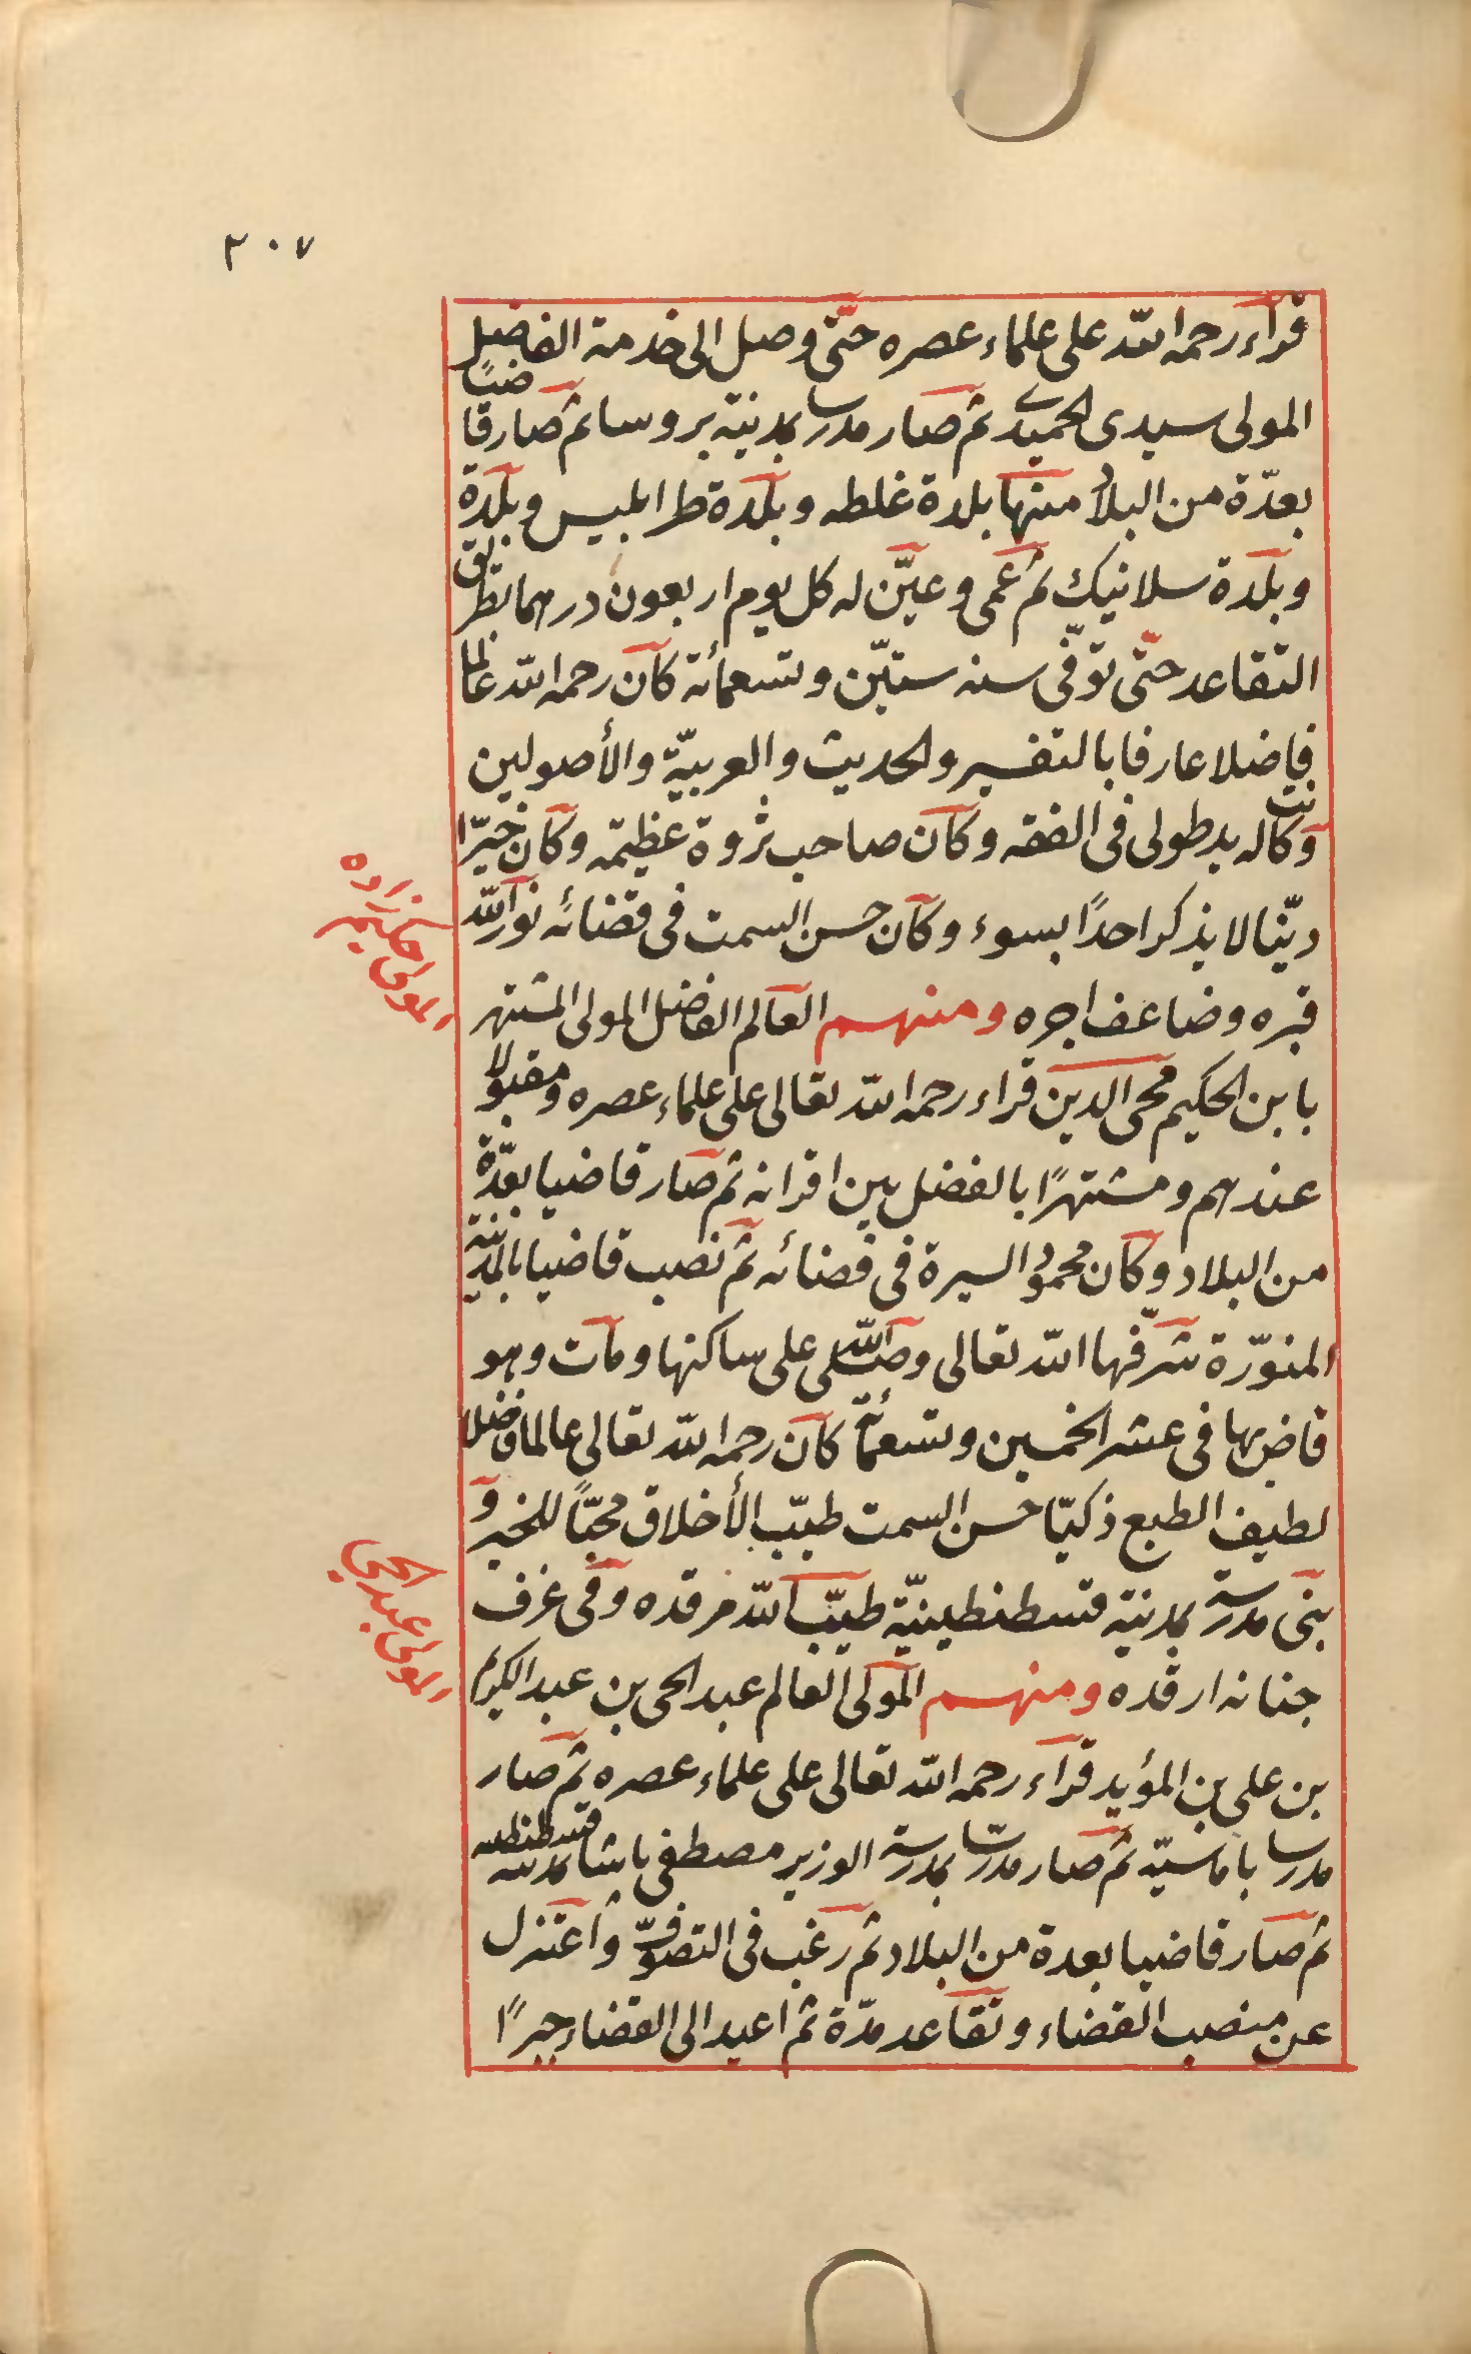 ٣٠٧
قراء رحمه الله على علماء عصره حتّى وصل الى خدمة الفاضل
المولى سيدى الحميدى ثم صار مدرسا بمدينة بروسا ثم صار قاضيًا
بعدّة من البلاد منها بلدة غلطه وبلدة طرابليس وبلدة
وبلدة سلانيك ثم عمى وعيّن له كل يوم اربعون درهما بطريق
التقاعد حتّى توّفى سنه ستيّن وتسعمائة كان رحمه الله عالما
فاضلا عارفا بالتفسير والحديث والعربيّة والأصولين
وكانت له يد طولى فى الفقه وكان صاحب ثروة عظيمه وكان خيّرا
ديّنا لا يذكر احدًا بسوء وكان حسن السمت فى قضائه نور الله
قبره وضاعف اجره ومنهم العالم الفاضل المولى المشتهر
بابن الحكيم محى الدين قراء رحمه الله تعالى على علماء عصره ومقبولا
عندهم ومشتهرًا بالفضل بين اقرانه ثم صار قاضيا بعدّة
من البلاد وكان محمود السيرة فى قضائه ثم نصب قاضيا بالمدينة
المنوّرة شرّفها الله تعالى وصلى الله على ساكنها ومات وهو
قاض بها فى عشر الخمسين وتسعمائة كان رحمه الله تعالى عالما فاضلا
لطيف الطبع ذكيّا حسن السمت طيّب الأخلاق محبّا للخير و
بنى مدرسة بمدينة قسطنطينيّة طيّب الله مرقده وفى غرف
جنانه ارقده ومنهم المولى العالم عبد الحى بن عبد الكريم
بن على بن المؤيد قراء رحمه الله تعالى على علماء عصره ثم صار
مدرسا باماسيّة ثم صار مدرسا بمدرسة الوزير مصطفى باشا بمدينة قسطنطنيه
ثم صار قاضيا بعدة من البلاد ثم رغب فى التصوّف واعتزل
عن منصب القضاء وتقاعد مدّة ثم اعيد الى القضاء جبرًا
المولى حكيم زاده
المولى عبد الحى